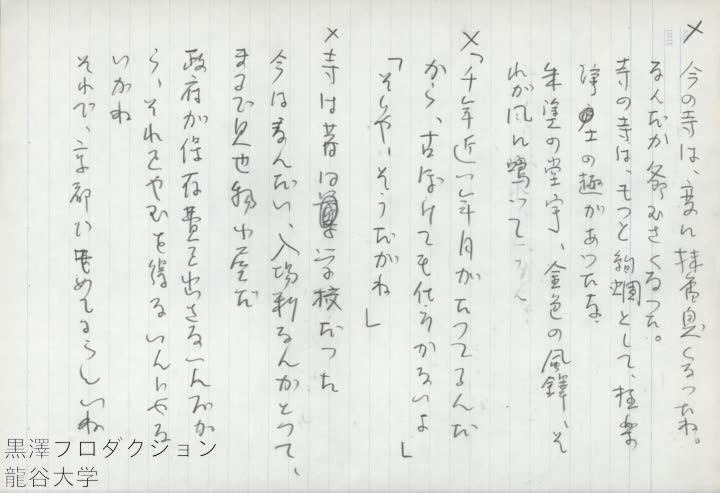 ×今の寺は、変に抹香臭くなったね。
なんだか爺むさくなった。
寺の寺は、もっと絢爛として、極楽
浄土の趣があったな、
朱塗の堂宇、金色の風鐸、そ
れが風に鳴って
×「千年近い年月がたってるんだ
から、古ぼけても仕方がないよ」
「そりゃ、そうだがね」
×寺は昔は学校だった
今はなんだい、入場料なんかとって、
まるで見世物小屋だ
政府が保存費を出さないんだか
ら、それもやむを得ないんじゃな
いかね
それで、京都ともめてるらしいね
黒澤プロダクション
龍谷大学